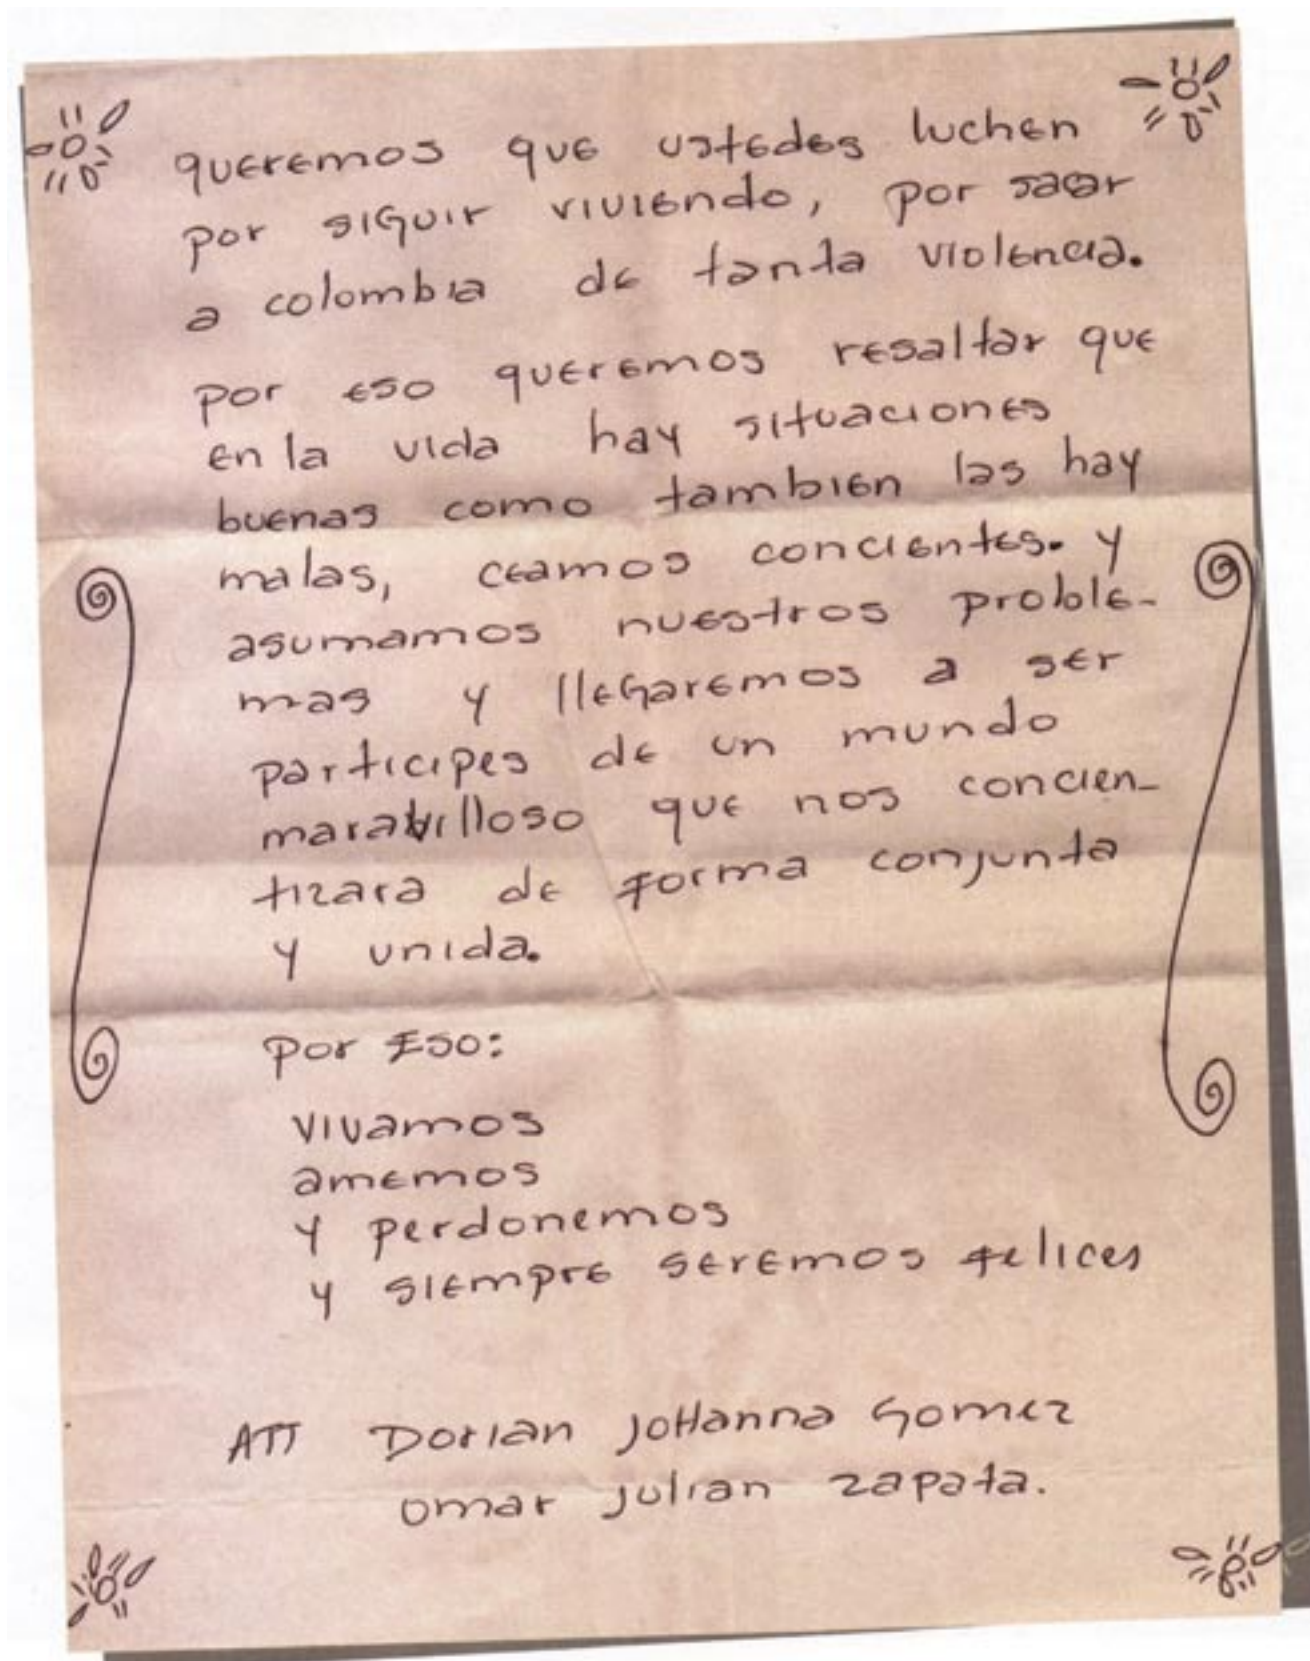 queremos que ustedes luchen
por siguir viviendo, por sacar
a colombia de tanta violencia.
por eso queremos resaltar que
en la vida hay situaciones
buenas como tambien las hay
malas, ceamos concientes. y
asumamos nuestros proble-
mas y llegaremos a ser
participes de un mundo
maravilloso que nos concien-
tizara de forma conjunta
y unida.
por Eso:
vivamos
amemos
y perdonemos
y siempre seremos felices
ATT Dorian joHanna Gomez
omar julian zapata.